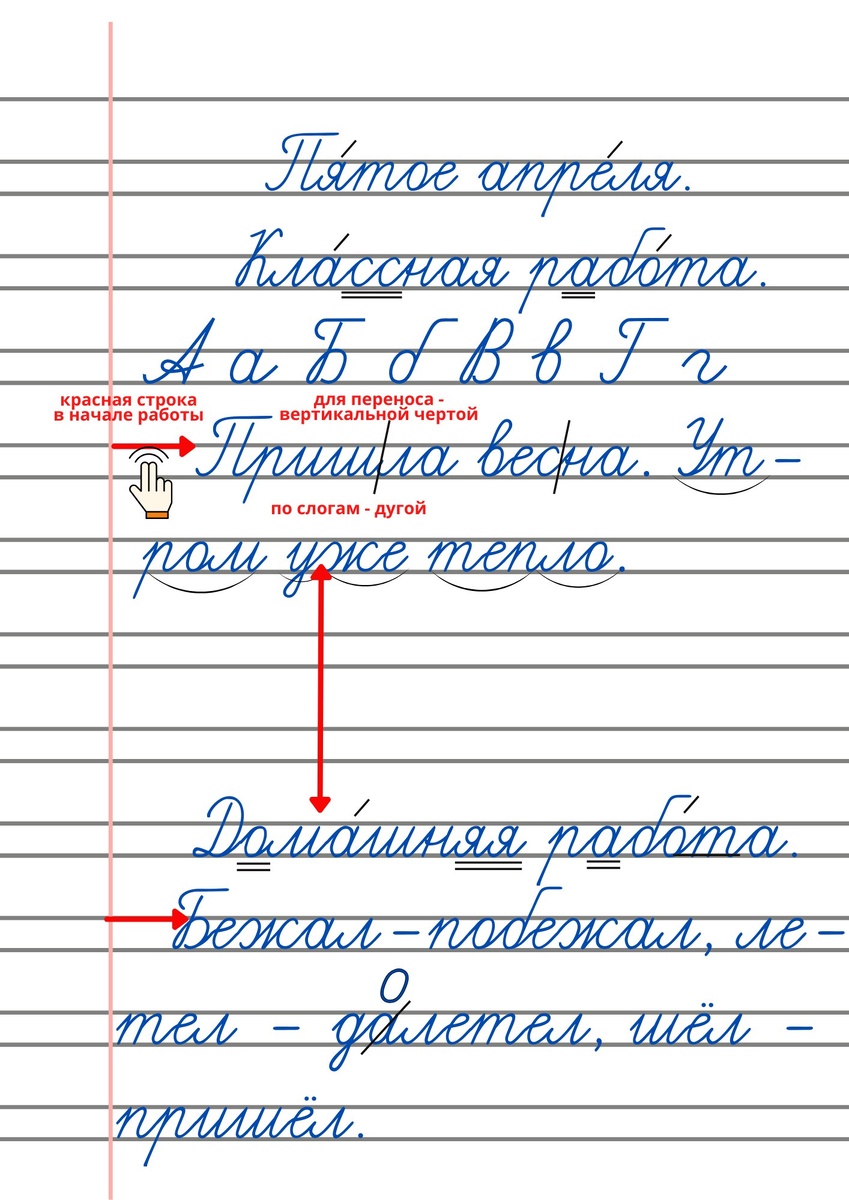 Пя́тое апре́ля.
Кла́ссная рабо́та.
А а Б б В в Г г
красная строка
в начале работы
для переноса -
вертикальной чертой
Приш|ла вес|на. Ут-
по слогам - дугой
ром уже тепло.
Дома́шняя рабо́та.
Бежал-побежал, ле-
о
тел - далетел, шёл -
пришёл.